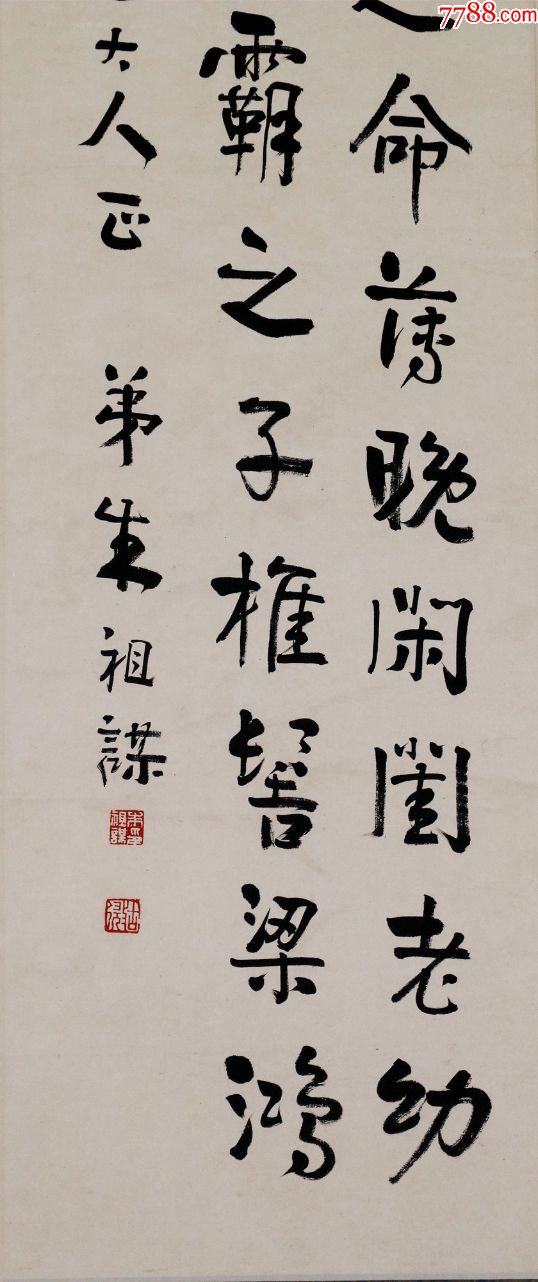 7788.com
命薄晚閑閨老幼
霸之子椎髻梁鴻
大人正 弟朱祖謀
朱印祖謀